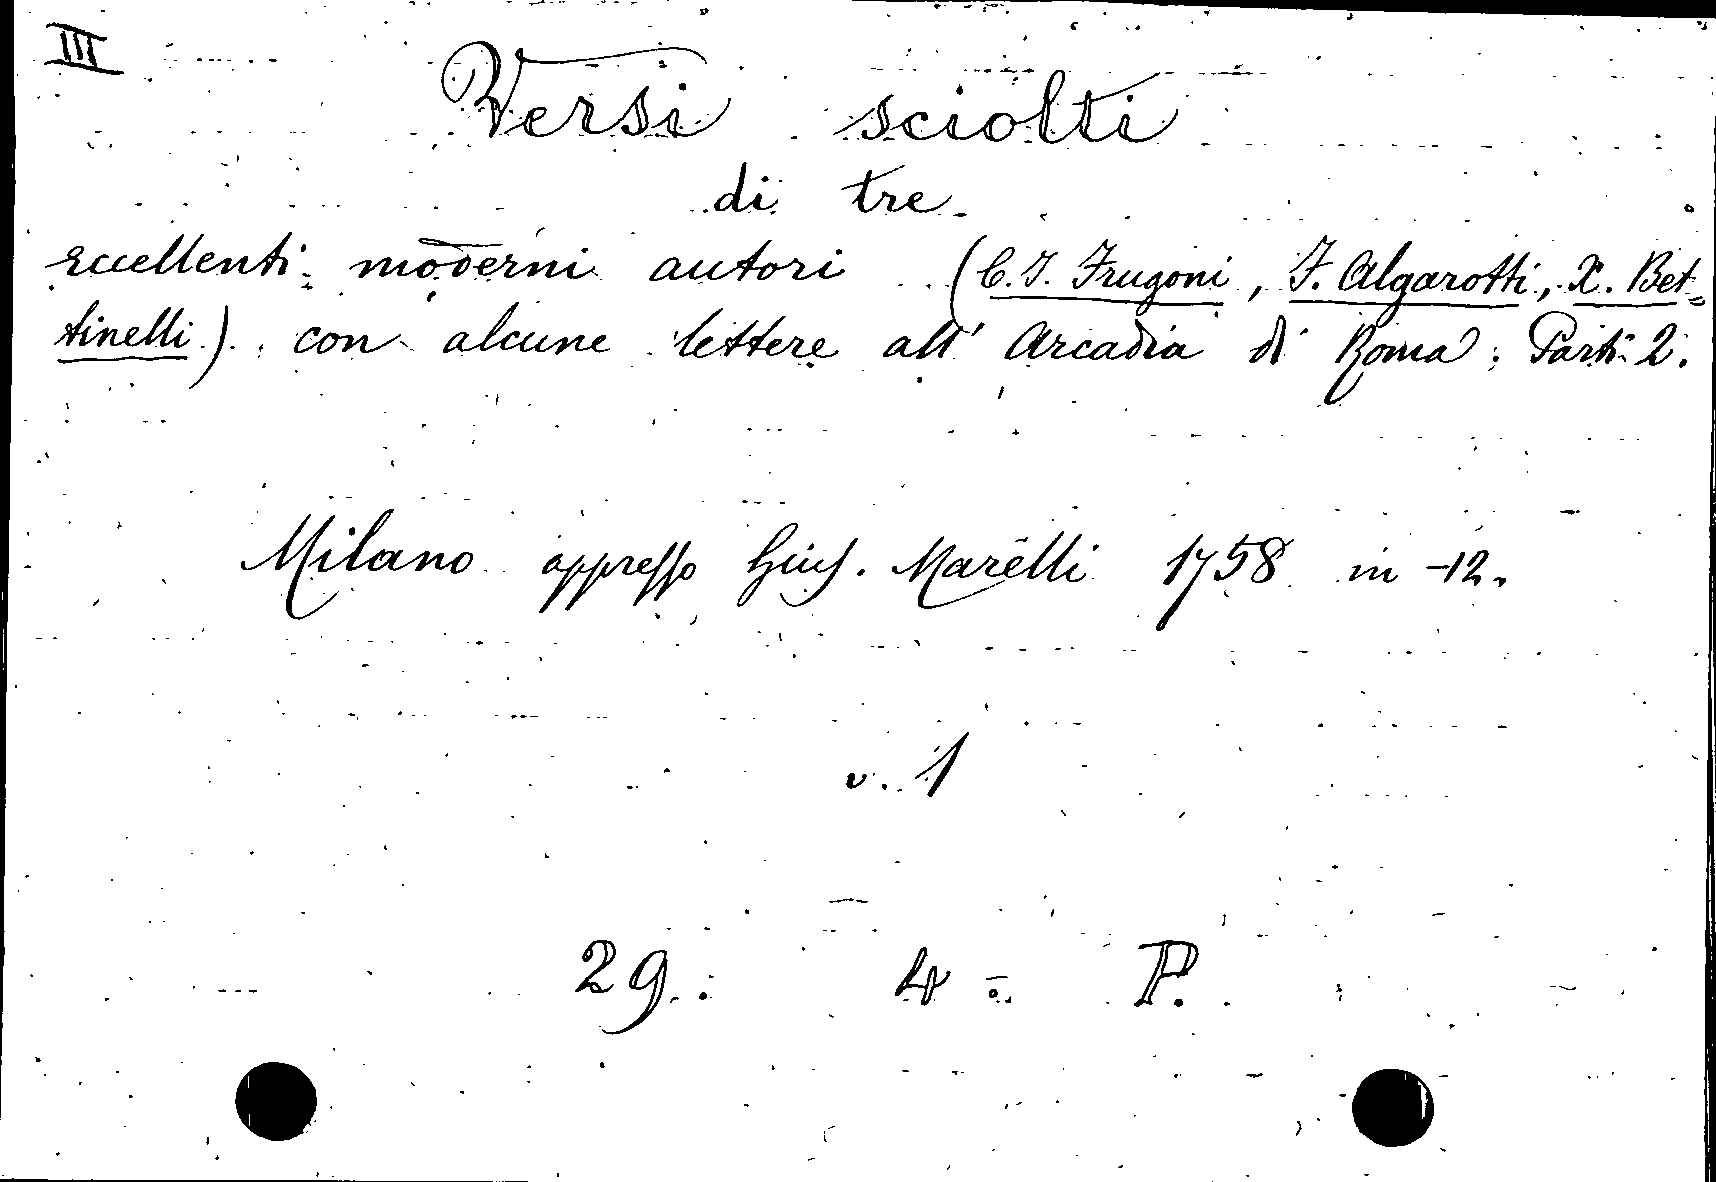 III
Versi sciolti
di tre
eccellenti moderni autori (C. I. Frugoni, F. Algarotti, X. Bet-
tinelli) con alcune lettere all' Arcadia di Roma. Parti 2.
Milano appresso Gius. Marelli 1758 in -12.
v. 1
29. 4 - P.